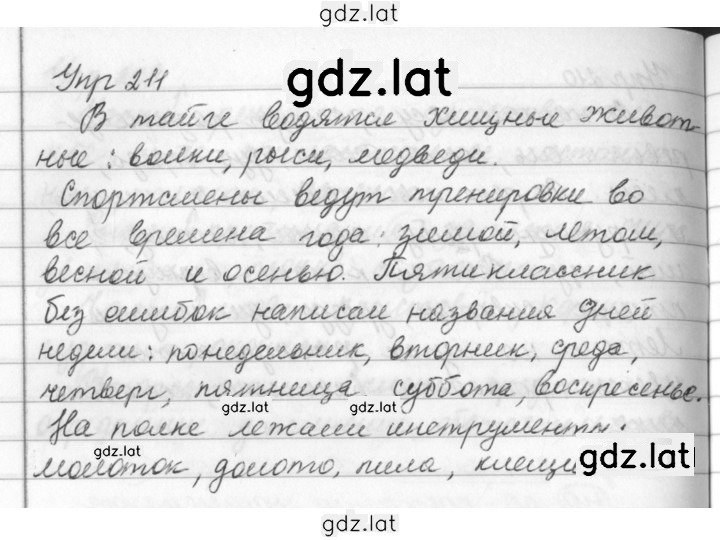 gdz.lat
Упр 211
gdz.lat
В тайге водятся хищные живот-
ные: волки, рыси, медведи.
Спортсмены ведут тренировки во
все времена года: зимой, летом,
весной и осенью. Пятиклассник
без ошибок написал названия дней
недели: понедельник, вторник, среда,
четверг, пятница суббота, воскресенье.
gdz.lat gdz.lat
На полке лежали инструменты:
молоток, долото, пила, клещи
gdz.lat
gdz.lat